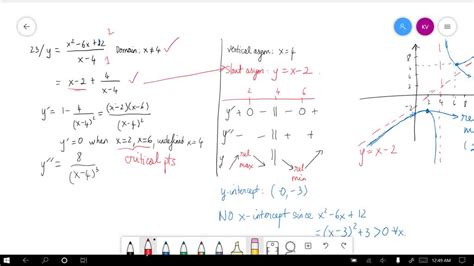 23/ y = x²-6x+12 / x-4 Domain: x≠4 ✓
= x-2 + 4/x-4 ✓
y' = 1 - 4/(x-4)² = (x-2)(x-6)/(x-4)²
y'=0 when x=2, x=6, undefined x=4
critical pts
y'' = 8/(x-4)³
vertical asym: x=4
Slant asym: y = x-2
2 4 6
y' + 0 - || - 0 +
y'' - - || + +
y rel max rel min
y-intercept: (0,-3)
NO x-intercept since x²-6x+12
= (x-3)²+3>0 ∀x.
KV
6
2
4
-2
2
y=x-2
rel
12:49 AM